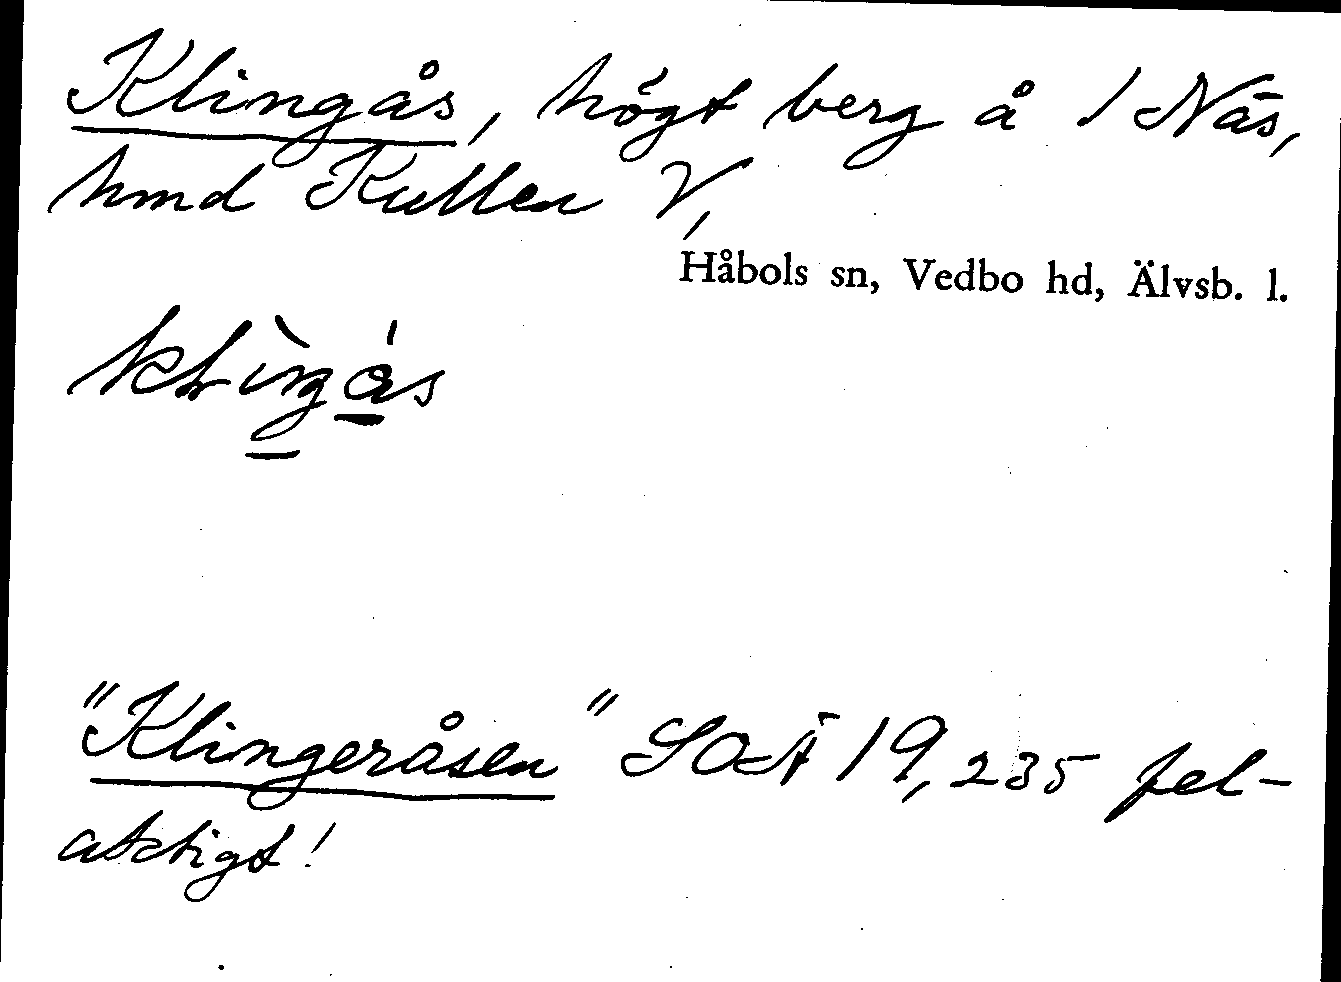 Klingås, högt berg å 1 Näs,
hmd Kullen V,
Håbols sn, Vedbo hd, Älvsb. l.
"Klingeråsen" SOÄ 19, 235 fel-
aktigt!